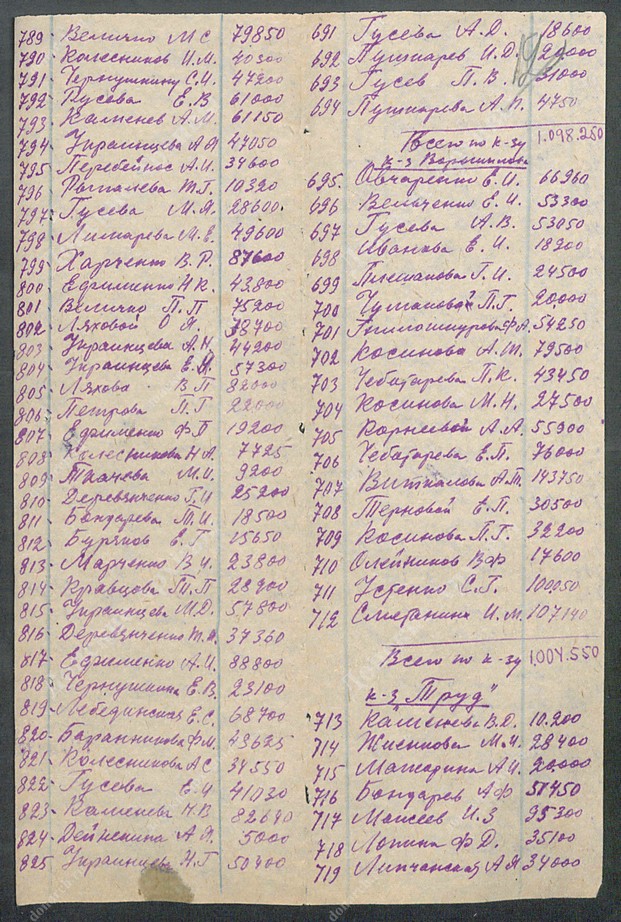 789 Величко М С 79850
790 Колесников И.М. 40300
791 Чернушкину С.И. 47200
792 Гусева Е.В 61000
793 Каменев А.М. 61150
794 Украинцева А Я 47050
795 Перебейнос А.И. 34600
796 Т.Г. 10320
797 Гусева М.Я. 28600
798 М.Е. 49600
799 Харченко В.Р. 87600
800 Ефименко Н К. 43800
801 Величко П.П 75200
802 Ляховой О Я. 78700
803 Украинцева А.Н. 44200
804 Украинцева Е.И. 57300
805 Ляхова В.П 82000
806 Петрова П.Г 22000
807 Ефименко Ф П 19200
808 Колесникова Н А. 7725
809 Ткачева М.И. 9200
810 Деревянченко Г.И 25200
811 Бондарева Т.И. 18500
812 Буряков Е.Г 15650
813 Марченко В И. 23800
814 Кравцова Т.П 28900
815 Украинцева М.Д. 57800
816 Деревянченко 37360
817 Ефименко А.И. 88800
818 Чернушкина Е.В. 23100
819 Лебединская Е.С. 68700
820 Баранникова Ф.М. 43625
821 Колесникова А С 34550
822 Гусева Е.И 41030
823 Каменева Н.В 82640
824 Дейнекина А Я. 5000
825 Украинцева Н.Г 50400
691 Гусева А.Д. 18600
692 Пушкарев И.Д. 20000
693 Гусев П.В. 31000
694 Пушкарева А.П. 4750
Всего по к-зу 1.098.280
к-з Ворошилова
695. Овчаренко Е.И. 66960
696 Величенко Е.И. 53300
697 Гусева А.В. 53050
698 Иванова Е.И. 18200
699 Г.И. 24500
700 П.Г. 20.000
701 Ф.А. 54250
702 Косинова А.Т. 79500
703 Чеботарева П.К. 43450
704 Косинова М.Н. 27500
705 Корнеевой А.А. 55900
706 Чеботарева Е.П. 76000
707 А.Т. 143750
708 Терновой Е.П. 30500
709 Косинова П.Г. 32200
710 Олейников В Ф 17600
711 Устенко С.Г. 100050
712 Сметанина И.М. 107140
Всего по к-зу 1,004.550
к-з "Труд"
713 Каменева В.Д. 10.200
714 М.И. 28400
715 А.И. 20.000
716 Бондарев А Ф 51450
717 Моисеев И.З 95300
718 Лопина Ф Д. 35100
719 Липчанская А Я 34000